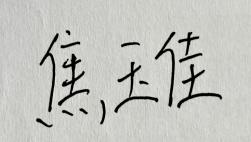 焦玉佳